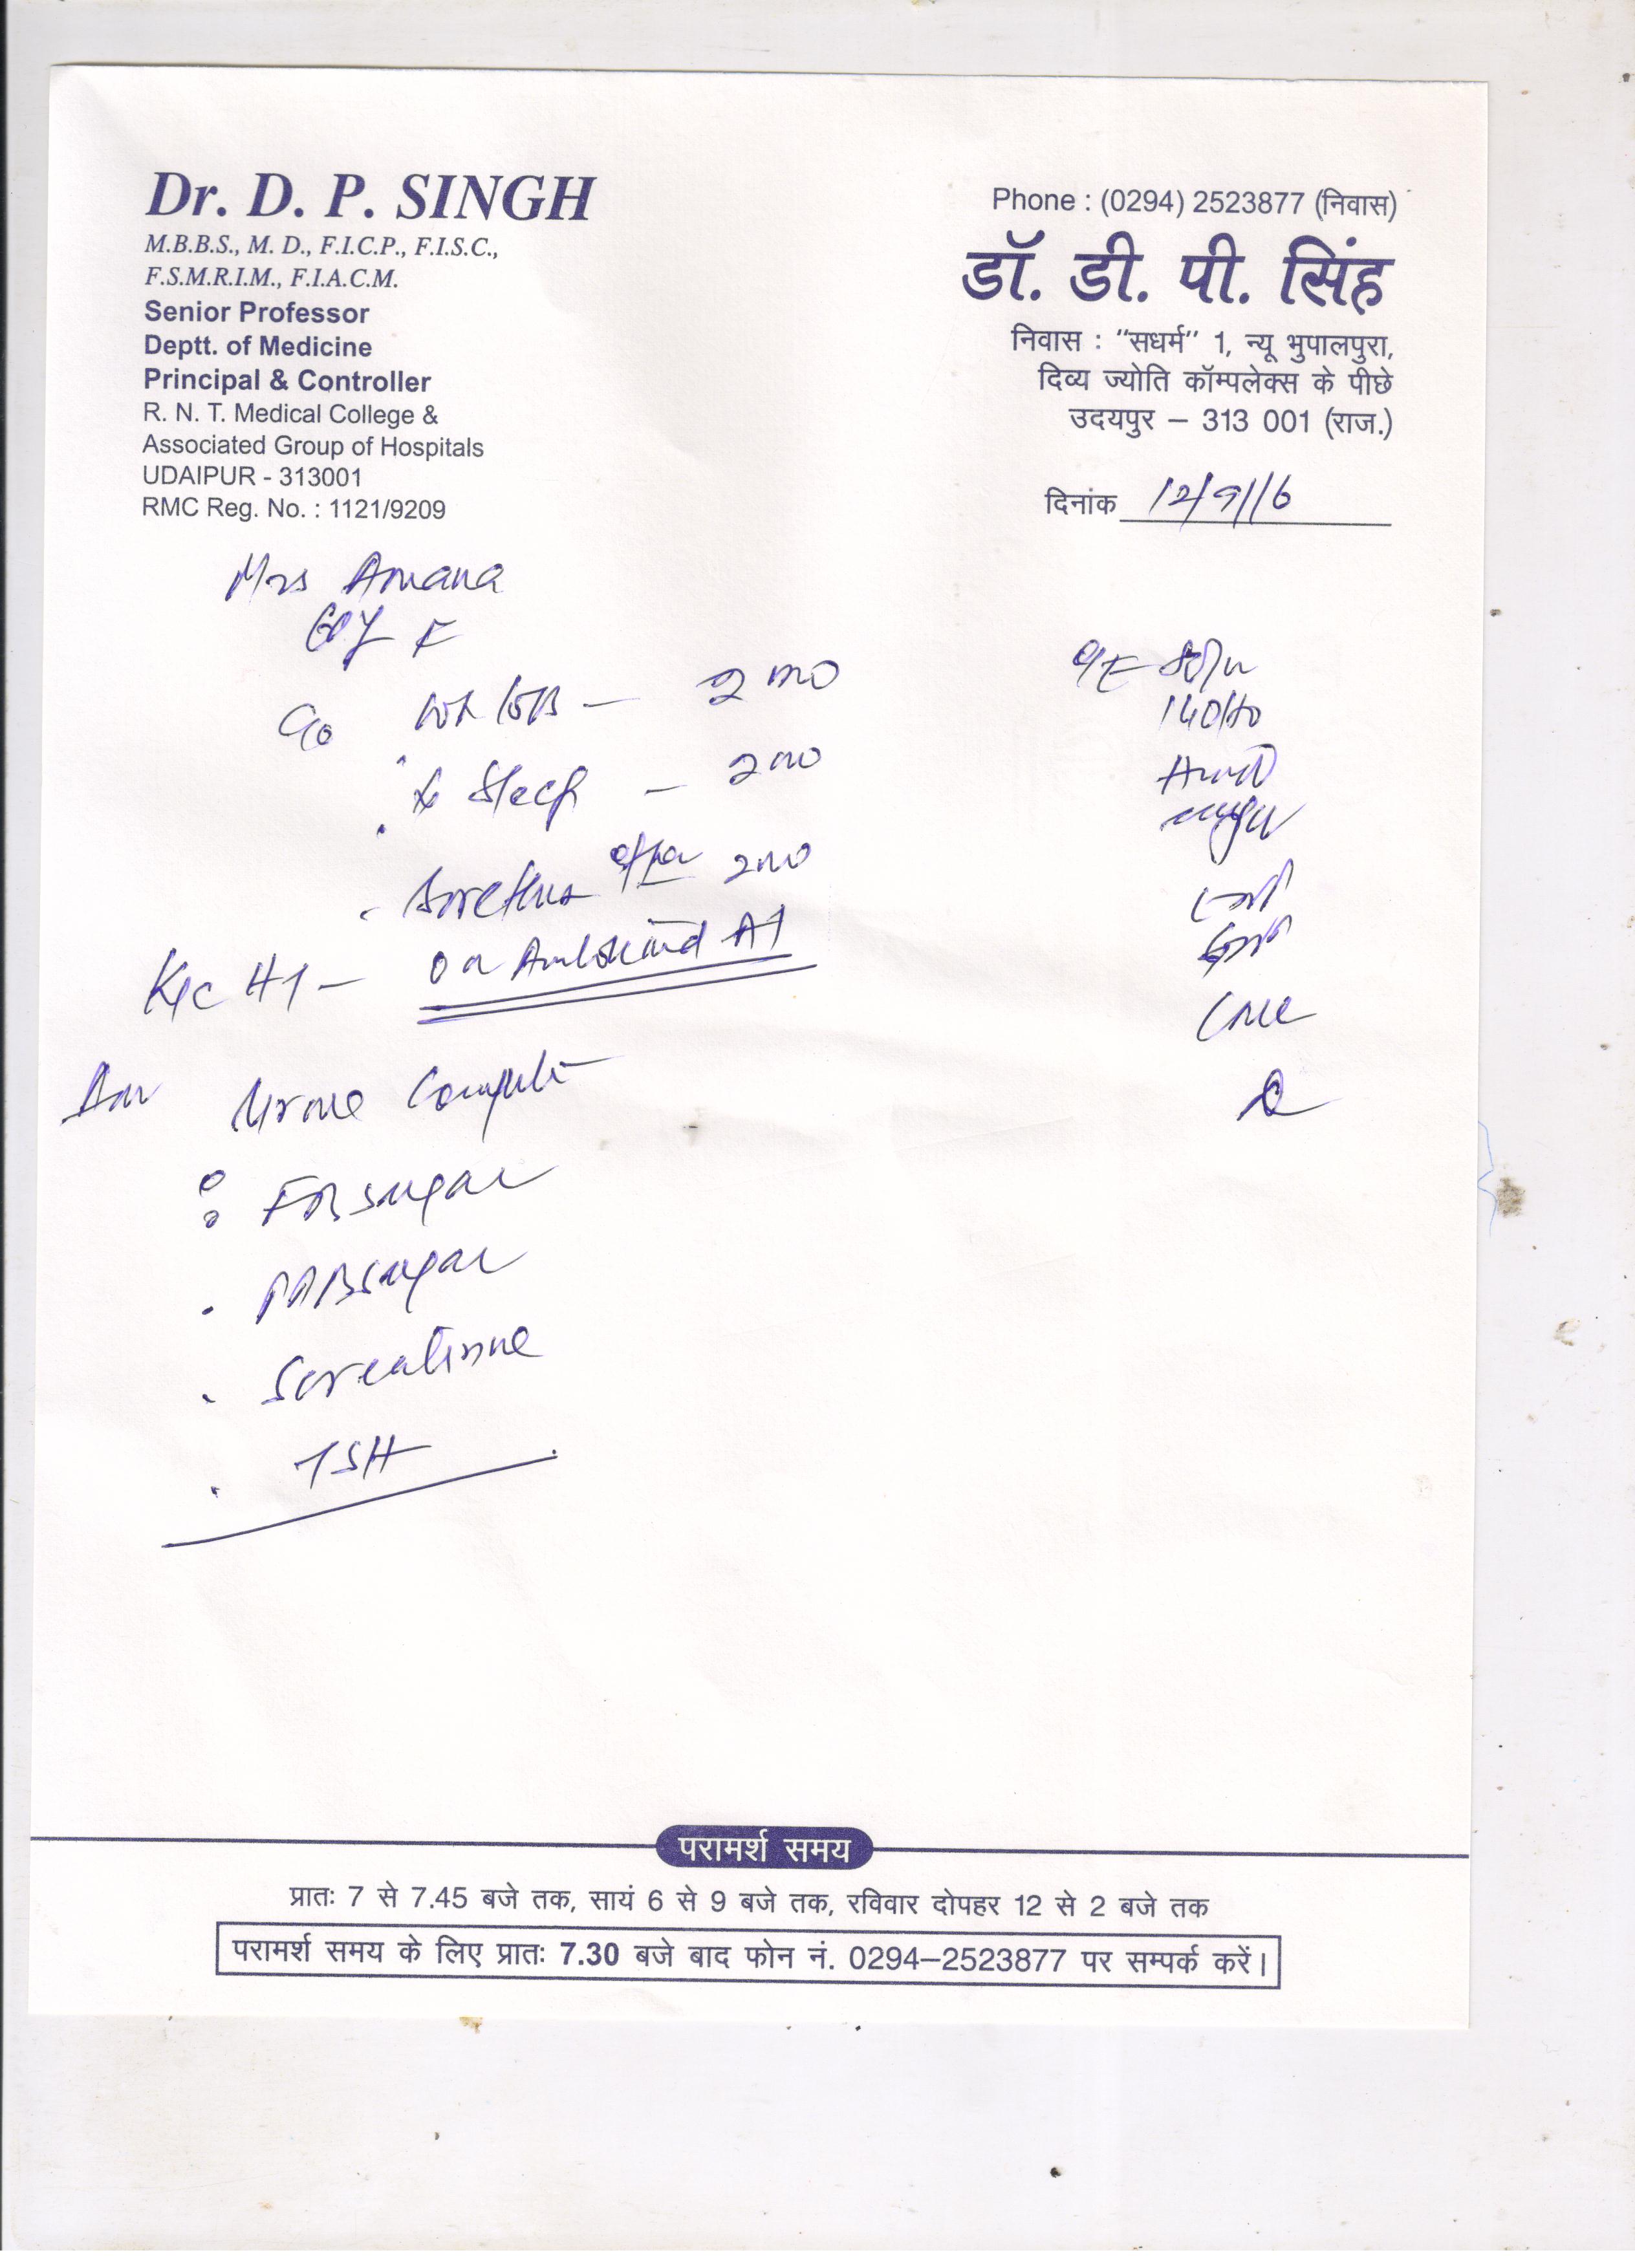 Dr. D. P. SINGH
M.B.B.S., M. D., F.I.C.P., F.I.S.C.,
F.S.M.R.I.M., F.I.A.C.M.
Senior Professor
Deptt. of Medicine
Principal & Controller
R. N. T. Medical College &
Associated Group of Hospitals
UDAIPUR - 313001
RMC Reg. No. : 1121/9209
Phone : (0294) 2523877 (निवास)
डॉ. डी. पी. सिंह
निवास : "सधर्म" 1, न्यू भुपालपुरा,
दिव्य ज्योति कॉम्पलेक्स के पीछे
उदयपुर – 313 001 (राज.)
दिनांक 12/9/16
Mrs Amana
F
c/o wt loss – 2 mo
Sleep – 2 mo
2 mo
K/c HT – on Amlokind AT
Urine Complete
FBsugar
PPBsugar
Screatinine
TSH
O/E
140/80
परामर्श समय
प्रातः 7 से 7.45 बजे तक, सायं 6 से 9 बजे तक, रविवार दोपहर 12 से 2 बजे तक
परामर्श समय के लिए प्रातः 7.30 बजे बाद फोन नं. 0294–2523877 पर सम्पर्क करें।